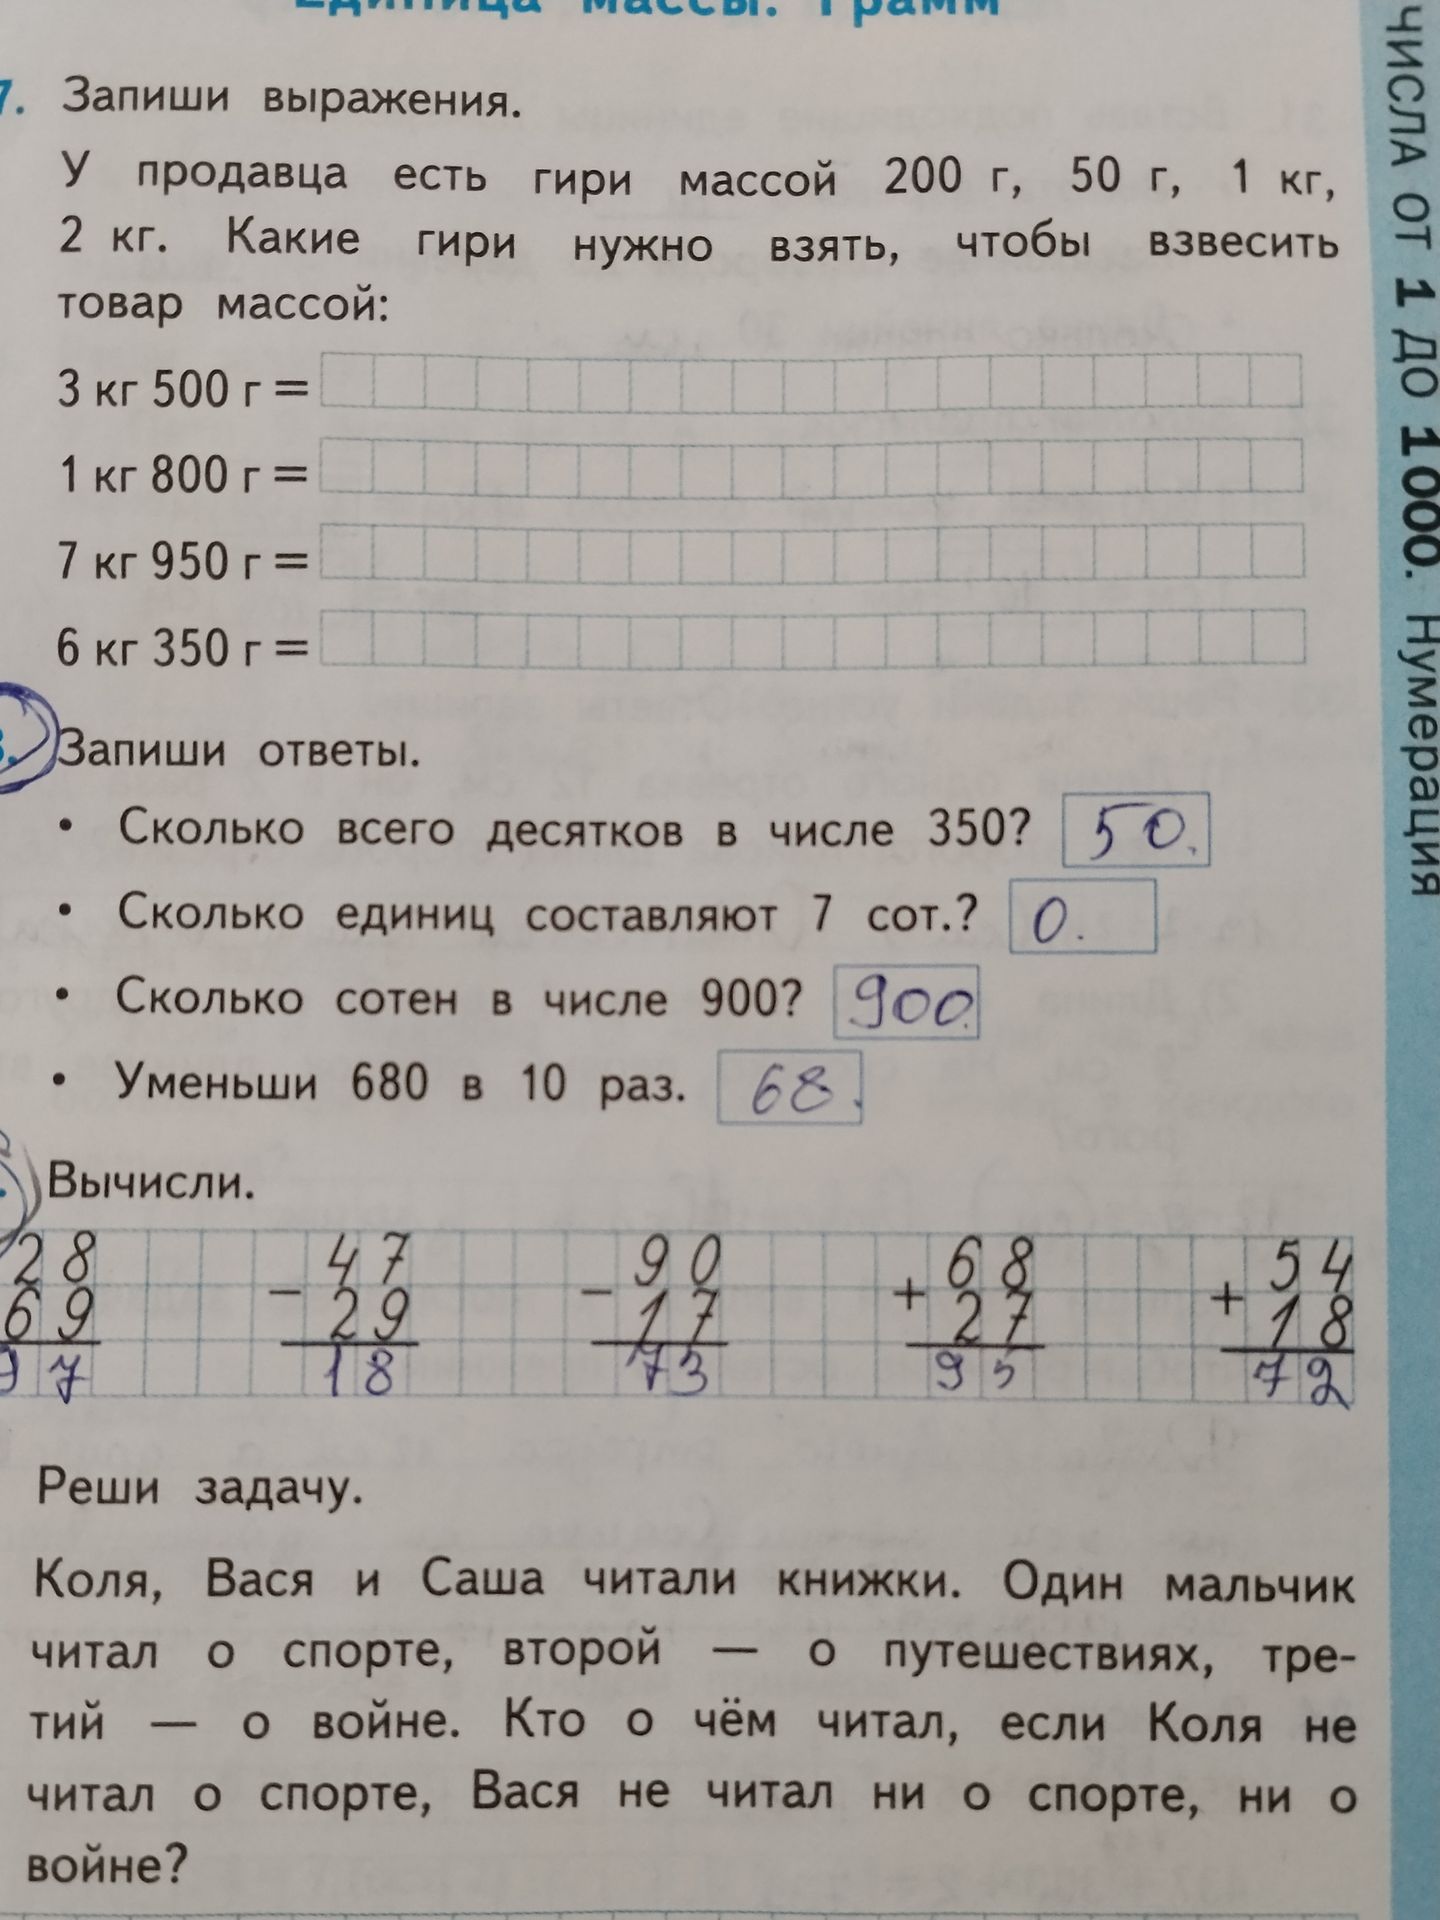 Единица массы. Грамм
7. Запиши выражения.
У продавца есть гири массой 200 г, 50 г, 1 кг,
2 кг. Какие гири нужно взять, чтобы взвесить
товар массой:
3 кг 500 г =
1 кг 800 г =
7 кг 950 г =
6 кг 350 г =
Запиши ответы.
• Сколько всего десятков в числе 350? 50.
• Сколько единиц составляют 7 сот.? 0.
• Сколько сотен в числе 900? 900.
• Уменьши 680 в 10 раз. 68.
Вычисли.
28 - 47 - 90 + 68 + 54
69 29 17 27 18
97 18 73 95 72
Реши задачу.
Коля, Вася и Саша читали книжки. Один мальчик
читал о спорте, второй — о путешествиях, тре-
тий — о войне. Кто о чём читал, если Коля не
читал о спорте, Вася не читал ни о спорте, ни о
войне?
ЧИСЛА ОТ 1 ДО 1000. Нумерация